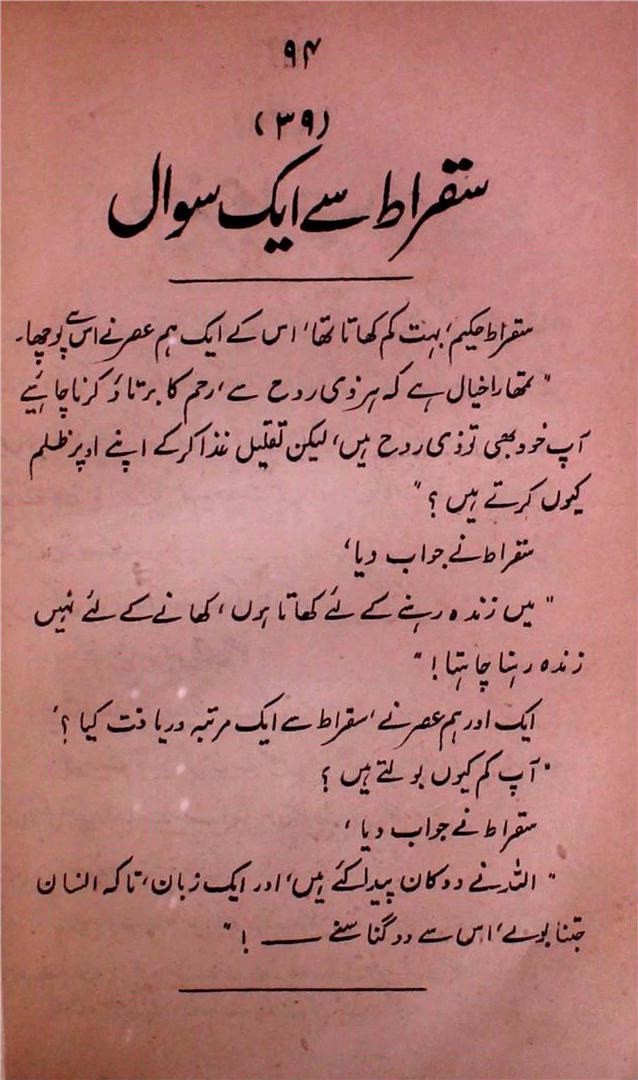 ۹۴
(۳۹)
سقراط سے ایک سوال
سقراط حکیم، بہت کم کھاتا تھا، اس کے ایک ہم عصر نے اس سے پوچھا۔
"تمھارا خیال ہے کہ ہر ذی روح سے، رحم کا برتاؤ کرنا چاہئیے
آپ خود بھی تو ذی روح ہیں، لیکن تقلیل غذا کرکے اپنے اوپر ظلم
کیوں کرتے ہیں ؟"
سقراط نے جواب دیا،
"میں زندہ رہنے کے لئے کھاتا ہوں، کھانے کے لئے نہیں
زندہ رہنا چاہتا !"
ایک اور ہم عصر نے، سقراط سے ایک مرتبہ دریافت کیا ؟،
"آپ کم کیوں بولتے ہیں ؟
سقراط نے جواب دیا،
"اللہ نے دو کان پیدا کئے ہیں، اور ایک زبان، تاکہ انسان
جتنا بولے، اس سے دو گنا سنے —— !"